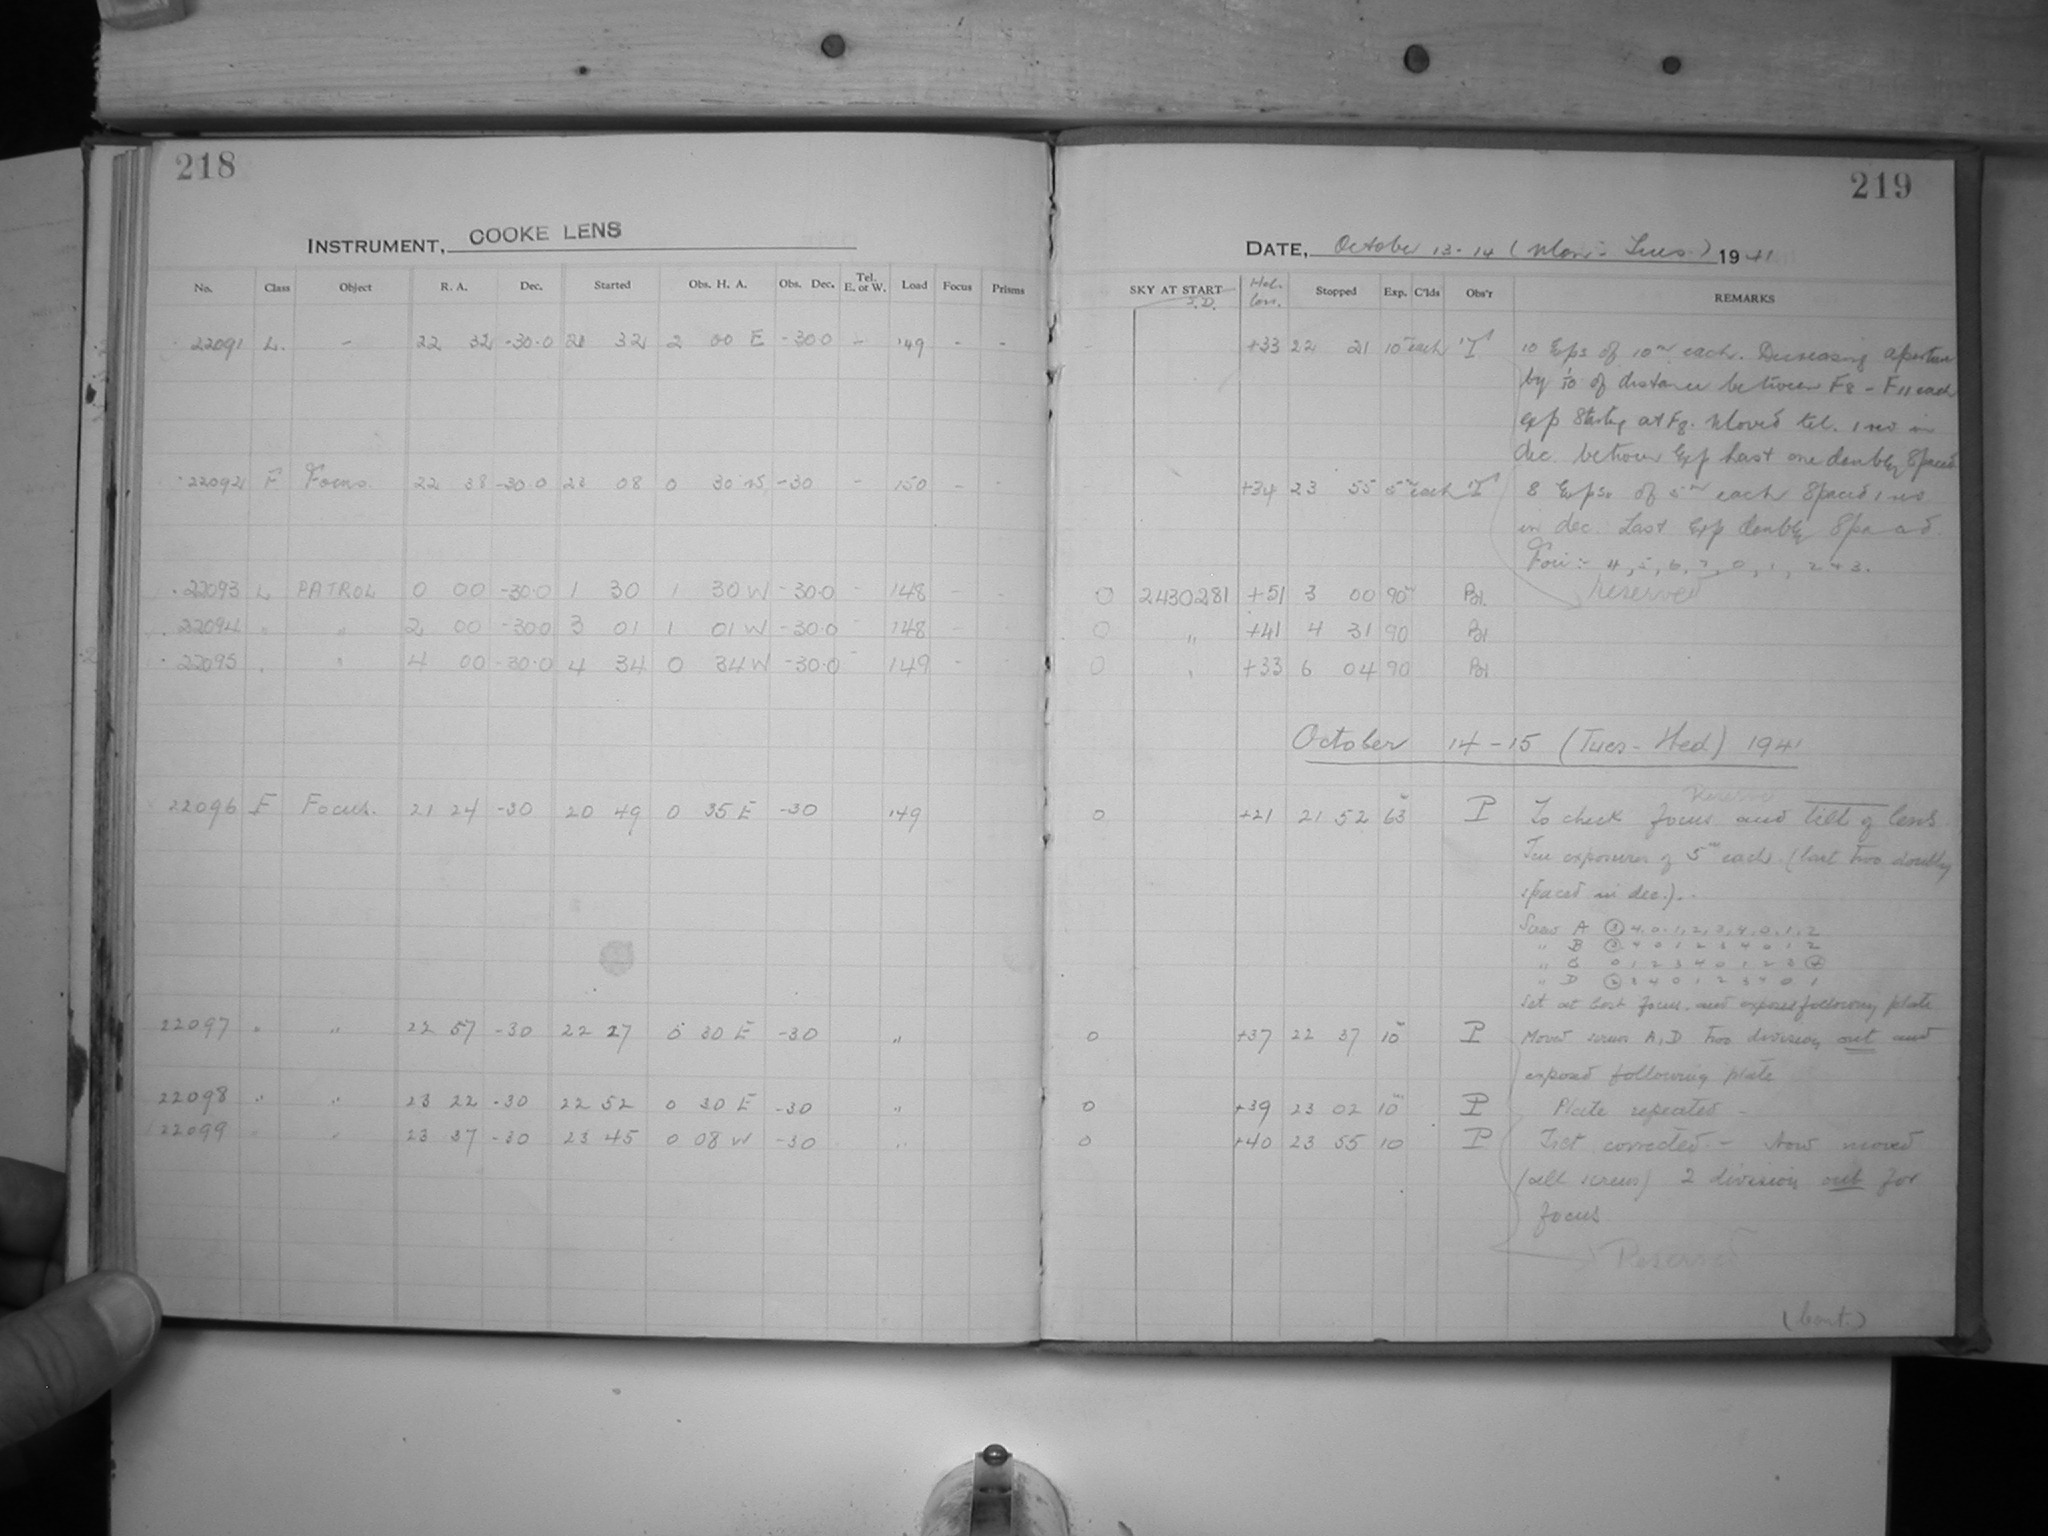 218
INSTRUMENT, COOKE LENS
No. Class Object R. A. Dec. Started Obs. H. A. Obs. Dec. Tel. E. or W. Load Focus Prisms
22091 L. - 22 32 -30.0 32 2 00 E -30.0 - 149 - -
22092 F Focus. 22 38 -30.0 23 08 0 30 W -30 - 150 - -
22093 L PATROL 0 00 -30.0 1 30 1 30 W -30.0 - 148 - -
22094 " " 2 00 -30.0 3 01 1 01 W -30.0 - 148 - -
22095 " " 4 00 -30.0 4 34 0 34 W -30.0 - 149 - -
22096 F Focus. 21 24 -30 20 49 0 35 E -30 149
22097 " " 22 57 -30 22 27 0 30 E -30 "
22098 " " 23 22 -30 22 52 0 30 E -30 "
22099 " " 23 37 -30 23 45 0 08 W -30 "
219
DATE, October 13-14 (Mon: Tues.) 1941
SKY AT START J.D. Hel. Corr. Stopped Exp. C'lds Obs'r REMARKS
- +33 22 21 10m each 10 Exps of 10m each. Decreasing aperture
by 1/10 of distance between F8 - F11 each
exp starting at F8. Moved tel. 1 rev in
dec. between Exp last one doubly spaced
+34 23 55 5m each 8 Exps. of 5m each spaced 1 rev
in dec. Last Exp doubly spaced
Foci:- 4, 5, 6, 7, 0, 1, 2 + 3.
Reserved
0 2430281 +51 3 00 90m Pol.
0 " +41 4 31 90 Pol
0 " +33 6 04 90 Pol
October 14-15 (Tues-Wed.) 1941
Reserved
0 +21 21 52 63m P To check focus and tilt of lens
Ten exposures of 5m each. (last two doubly
spaced in dec.).
Screw A 3 4, 0, 1, 2, 3, 4, 0, 1, 2
" B 3 4 0 1 2 3 4 0 1 2
" C 0 1 2 3 4 0 1 2 3 4
" D 2 3 4 0 1 2 3 4 0 1
Set at best focus and exposed following plate
0 +37 22 37 10m P Moved screws A, D two division out and
exposed following plate
0 +39 23 02 10m P Plate repeated -
0 +40 23 55 10 P Tilt corrected - Now moved
(all screws) 2 division out for
focus
Reserved
(Cont.)